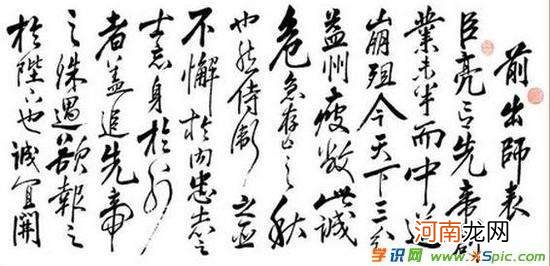 前出師表
臣亮言先帝創
業未半而中道
崩殂今天下三分
益州疲敝此誠
危急存亡之秋
也然侍衛之臣
不懈於內忠志之
士忘身於外
者蓋追先帝
之殊遇欲報之
於陛下也誠宜開
河南龙网
学识网 www.xSpic.com